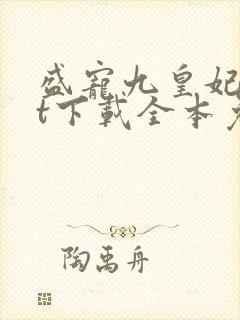 盛寵九皇妃
t下載全本
陶禹舟